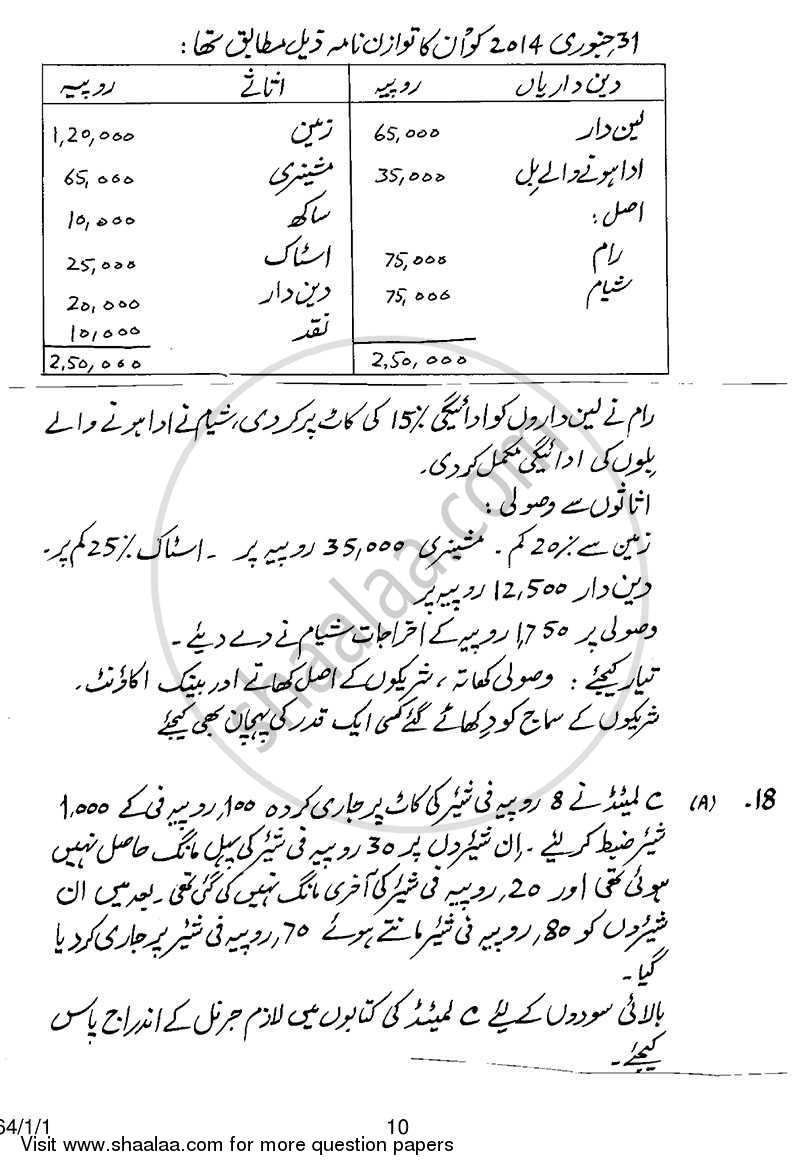 31 جنوری 2014 کو اُن کا توازن نامہ ذیل مطابق تھا :
دین داریاں روپیہ اثاثے روپیہ
لین دار 65,000 زمین 1,20,000
ادا ہونے والے بِل 35,000 مشینری 65,000
اصل : ساکھ 10,000
رام 75,000 اسٹاک 25,000
شیام 75,000 دین دار 20,000
نقد 10,000
2,50,000 2,50,000
رام نے لین داروں کو ادائیگی 15% کی کاٹ پر کر دی، شیام نے ادا ہونے والے
بِلوں کی ادائیگی مکمل کر دی۔
اثاثوں سے وصولی :
زمین سے 20% کم ۔ مشینری 35,000 روپیہ پر ۔ اسٹاک 25% کم پر۔
دین دار 12,500 روپیہ پر
وصولی پر 1,750 روپیہ کے اخراجات شیام نے دے دیئے ۔
تیار کیجئے : وصولی کھاتہ ، شریکوں کے اصل کھاتے اور بینک اکاؤنٹ ۔
شریکوں کے سماج کو دِکھائے گئے کسی ایک قدر کی پہچان بھی کیجئے
18. (A) C لمیٹڈ نے 8 روپیہ فی شیئر کی کاٹ پر جاری کردہ 100 روپیہ فی کے 1,000
شیئر ضبط کر لئے ۔ اِن شیئروں پر 30 روپیہ فی شیئر کی پہلی مانگ حاصل نہیں
ہوئی تھی اور 20 روپیہ فی شیئر کی آخری مانگ نہیں کی گئی تھی ۔ بعد میں ان
شیئروں کو 80 روپیہ فی شیئر مانتے ہوئے 70 روپیہ فی شیئر پر جاری کر دیا
گیا ۔
بالائی سودوں کے لئے C لمیٹڈ کی کتابوں میں لازم جرنل کے اندراج پاس
کیجئے ۔
shaalaa.com
64/1/1 10
Visit www.shaalaa.com for more question papers